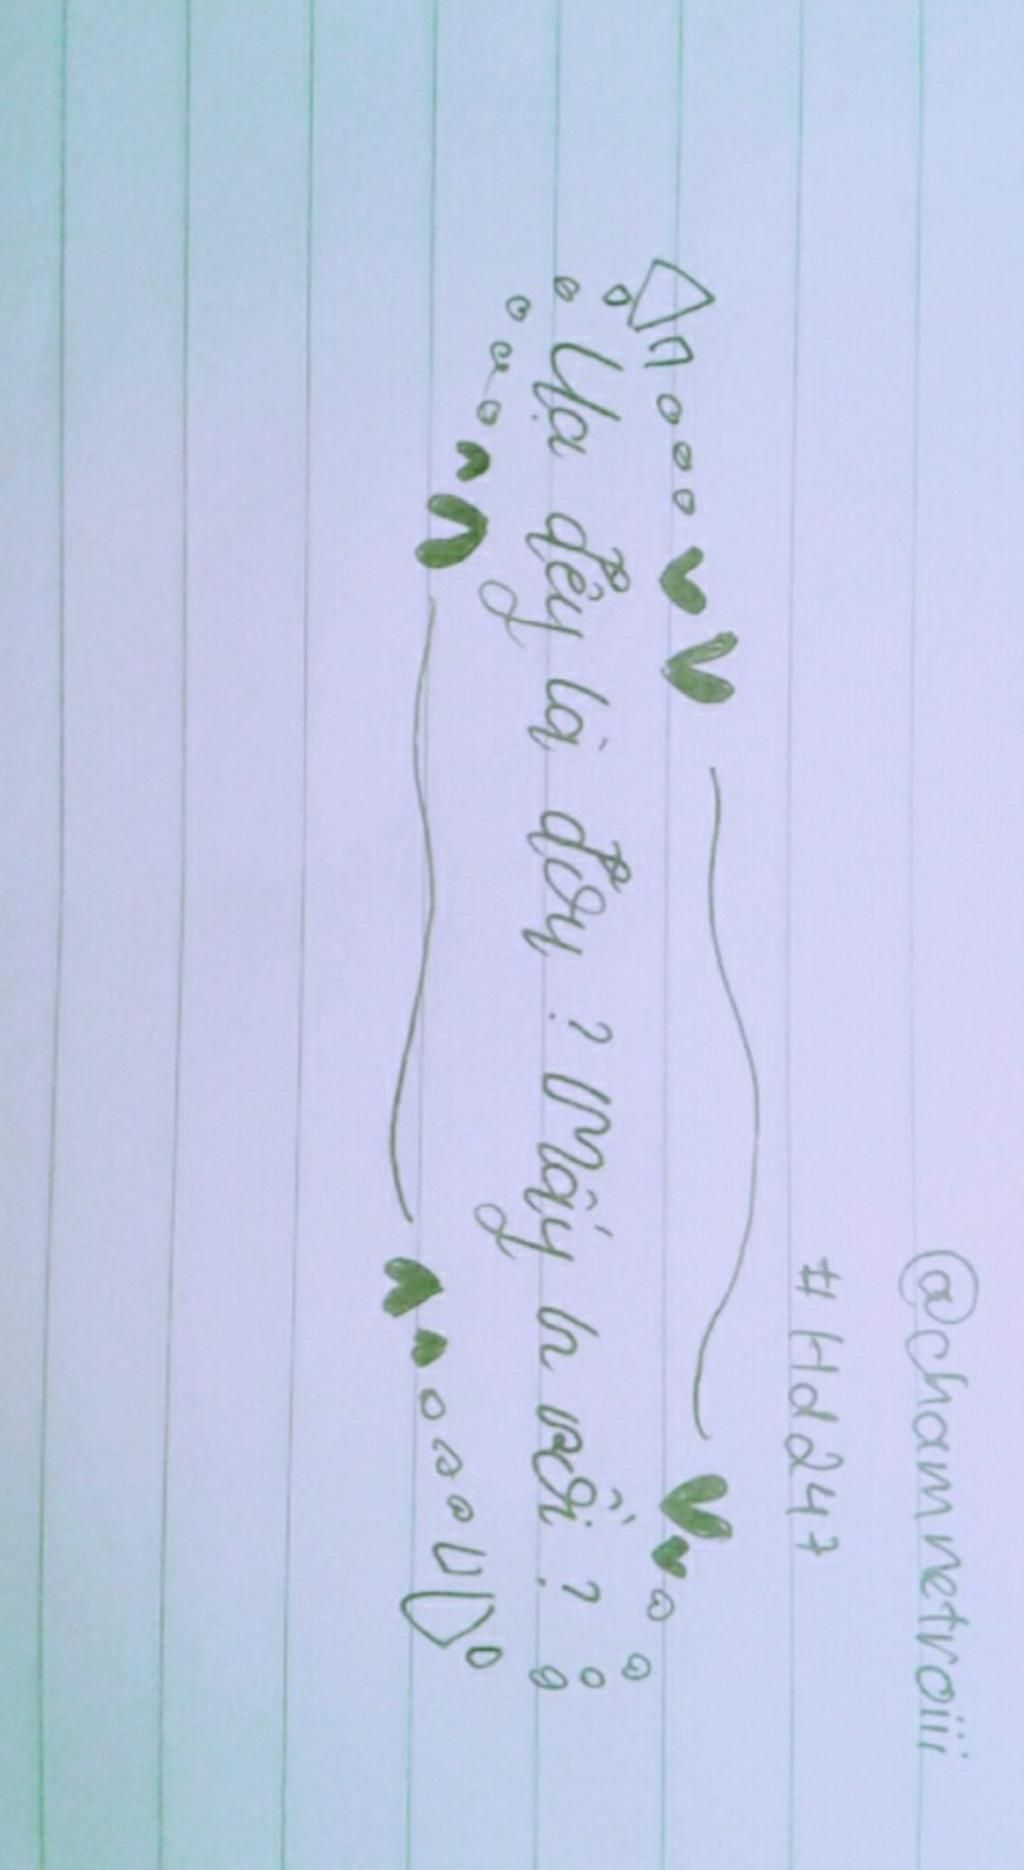 @chamnetroiii
#Hd247
Ụa đêy là đơy? Mấy h rồi?